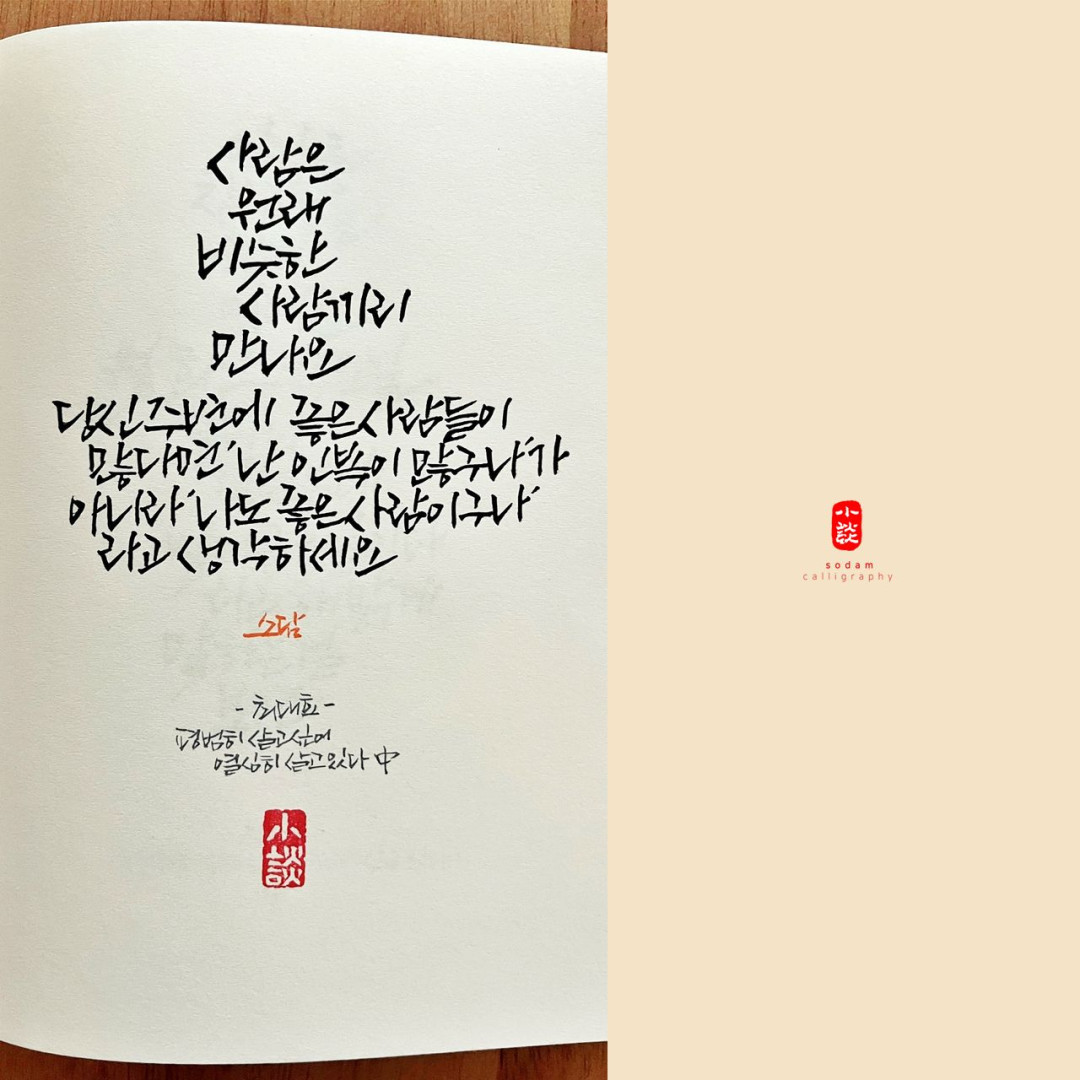 사람은
원래
비슷한
사람끼리
만나요
당신 주변에 좋은 사람들이
많다면 '난 인복이 많구나'가
아니라 '나도 좋은 사람이구나'
라고 생각하세요
소담
- 최대호 -
평범히 살고 싶어
열심히 살고 있다 中
小
談
小
談
sodam
calligraphy